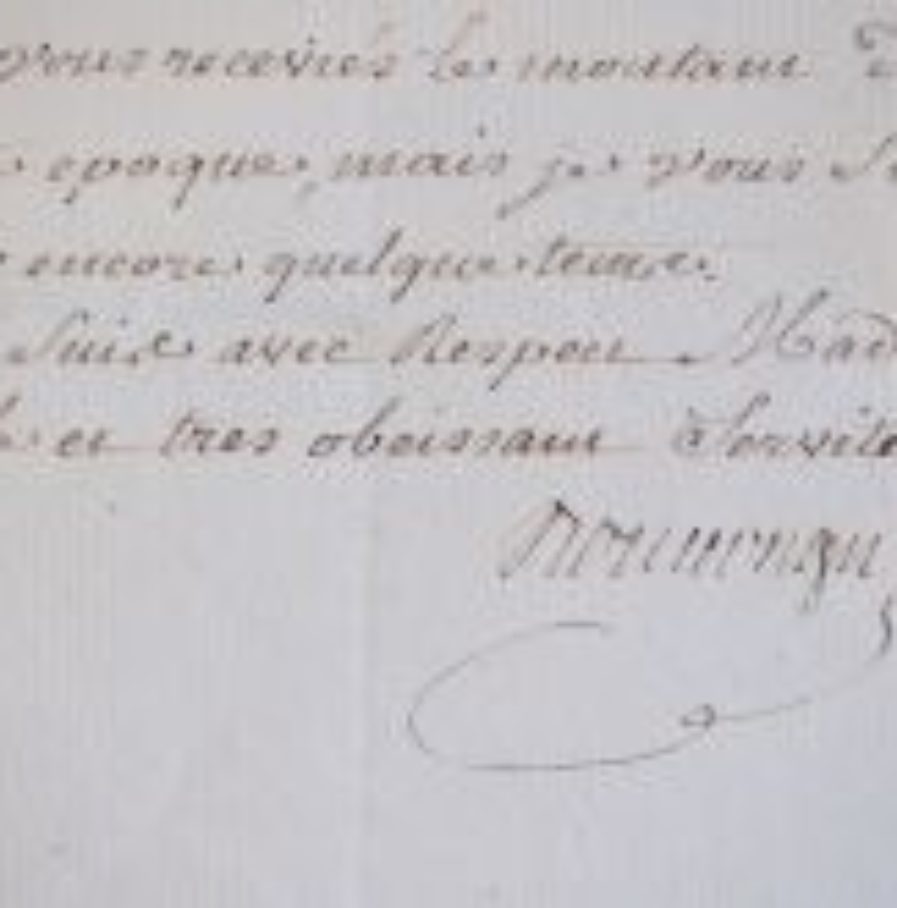 vous receviés le montant
epoque, mais je vous
encore quelque tems.
Suis avec Respect Mad
et tres obeissant Servite